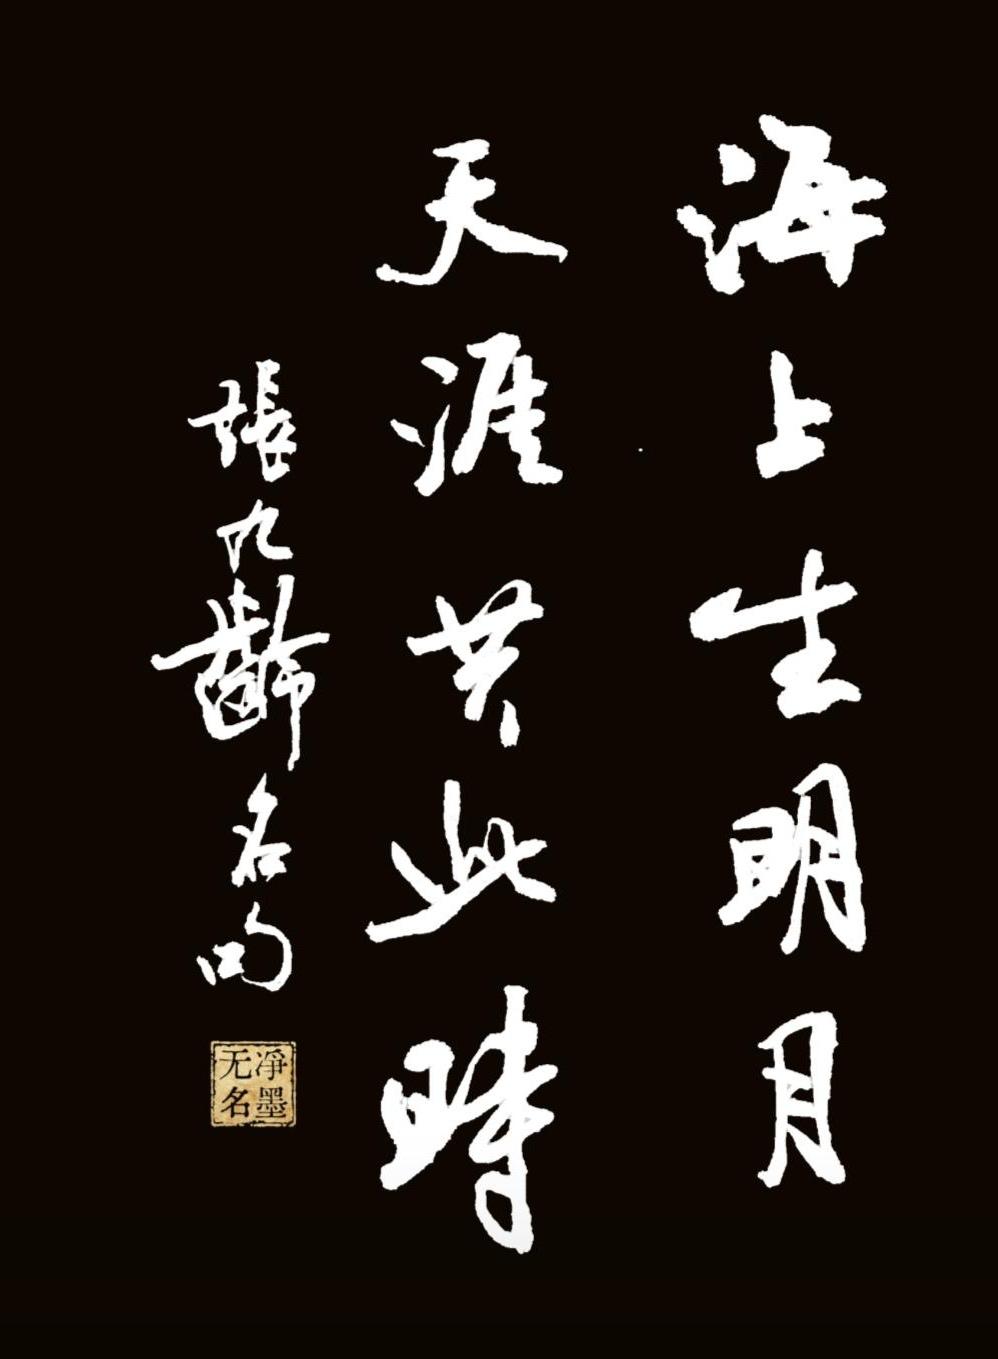 海上生明月
天涯共此時
張九齡名句
淨墨
无名